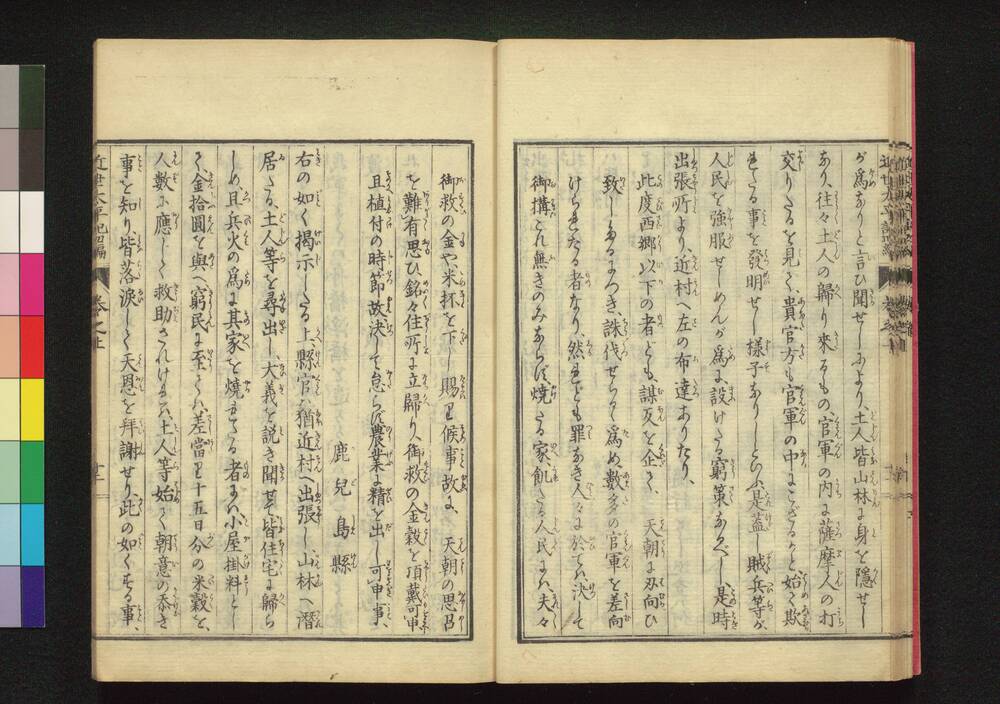 が爲なりと言ひ聞せしにより土人皆山林に身を隱せし
なり、往々土人の歸り來るもの、官軍の内に薩摩人の打
交りたるを見て、貴官方も官軍の中にござるかと、始て欺
れたる事を發明せし樣子なりしといふ、是蓋し賊兵等が、
人民を強服せしめんが爲に、設けたる窮策なるべし、是時
出張所より、近村へ左の布達ありたり、
此度西郷以下の者ども、謀反を企て、天朝に刃向ひ
致し候につき、誅伐せられん爲め、數多の官軍を差向
けられたる者なり、然れども罪なき人々に於ては、決して
御搆これ無きのみならず、燒たる家、飢たる人民には、夫々
御救の金や米抔を下し賜り候事故に、天朝の思召
を難有思ひ、銘々住所に立歸り、御救の金穀を頂戴可申、
且植付の時節故決して怠らず農業に精を出し可申事、
鹿兒島縣
右の如く揭示したる上、縣官が猶近村へ出張し、山林へ潜
居たる、土人等を尋出し、大義を説き聞せて皆住宅に歸ら
しめ且兵火の爲に其家を燒れたる者には、小屋掛料とし
て金拾圓を與へ、窮民に至ては、差當り十五日分の米穀を、
人數に應じて救助されければ、土人等始て朝意の忝き
事を知り、皆落涙して天恩を拜謝せり、此の如くする事、
近世太平記四編
卷之上
十二